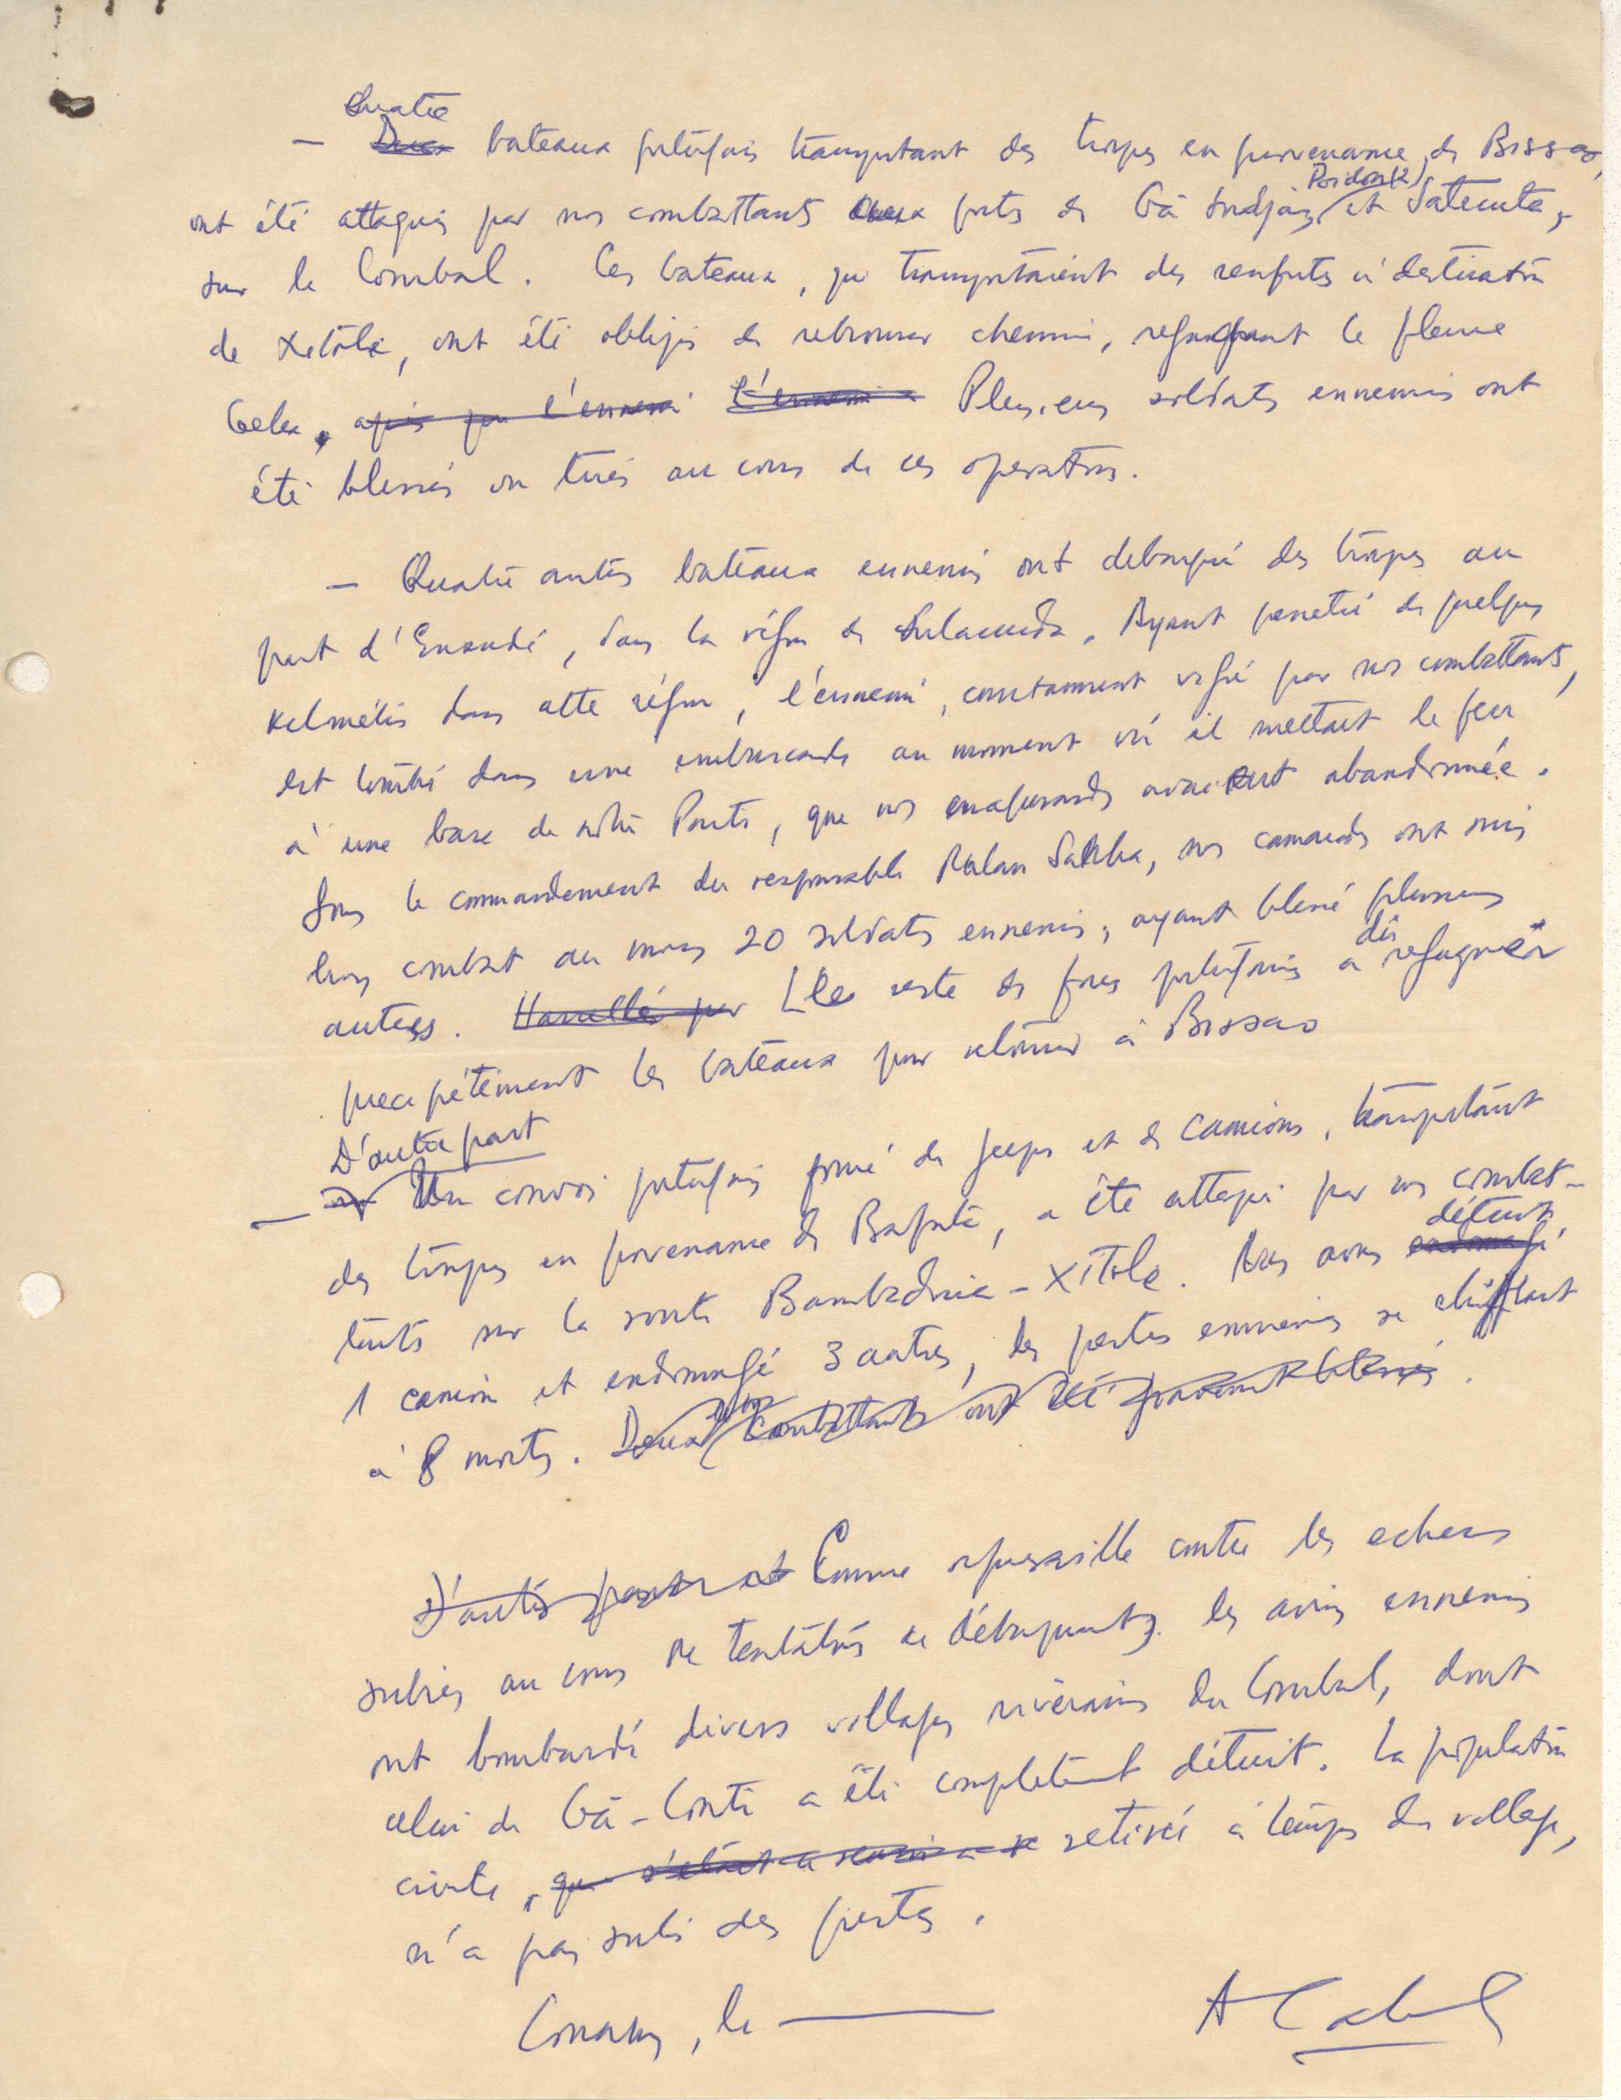 Quatre
— Deux bateaux portugais transportant des troupes en provenance de Bissao,
Poidon (2)
ont été attaqués par nos combattants aux ports de Gã et
sur le Corubal. Ces bateaux, qui transportaient des renforts à destination
de Xitole, ont été obligés de rebrousser chemin, regagnant le fleuve
Geba, après que l'ennemi l'ennemi a Plusieurs soldats ennemis ont
été blessés ou tués au cours de ces operations.
— Quatre autres bateaux ennemis ont debarqué des troupes au
port d'Enxudé, dans la région de Fulacunda. Ayant penetré de quelques
kilomètres dans cette région, l'ennemi, constamment visé par nos combattants,
est tombé dans une embuscade au moment où il mettait le feu
à une base de notre Parti, que nos maquisards avaient abandonnée.
Sous le commandement du responsable Malan Sanha, nos camarades ont mis
hors combat au moins 20 soldats ennemis, ayant blessé plusieurs
dû
autres. Harcellés par Le reste des forces portugaises a regagner
precipitement les bateaux pour retourner à Bissao
D'autre part
— Un convoi portugais formé de jeeps et de camions, transportant
des troupes en provenance de Bafatá, a été attaqué par nos combat-
détruit
tants sur la route Bambadinca - Xitole. Nous avons endomagé
1 camion et endomagé 3 autres, les pertes ennemies se chiffrant
à 8 morts. Deux nos combattants ont été gravement blessés.
D'autre part Comme represaille contre les echecs
subies au cours de tentatives de débarquements les avions ennemis
ont bombardé divers villages riverains du Corubal, dont
celui de Gã-Conté a été completement détruit. La population
civile, qui s'était retirée à temps du village,
n'a pas subi des pertes.
Conakry, le ———
A Cabral